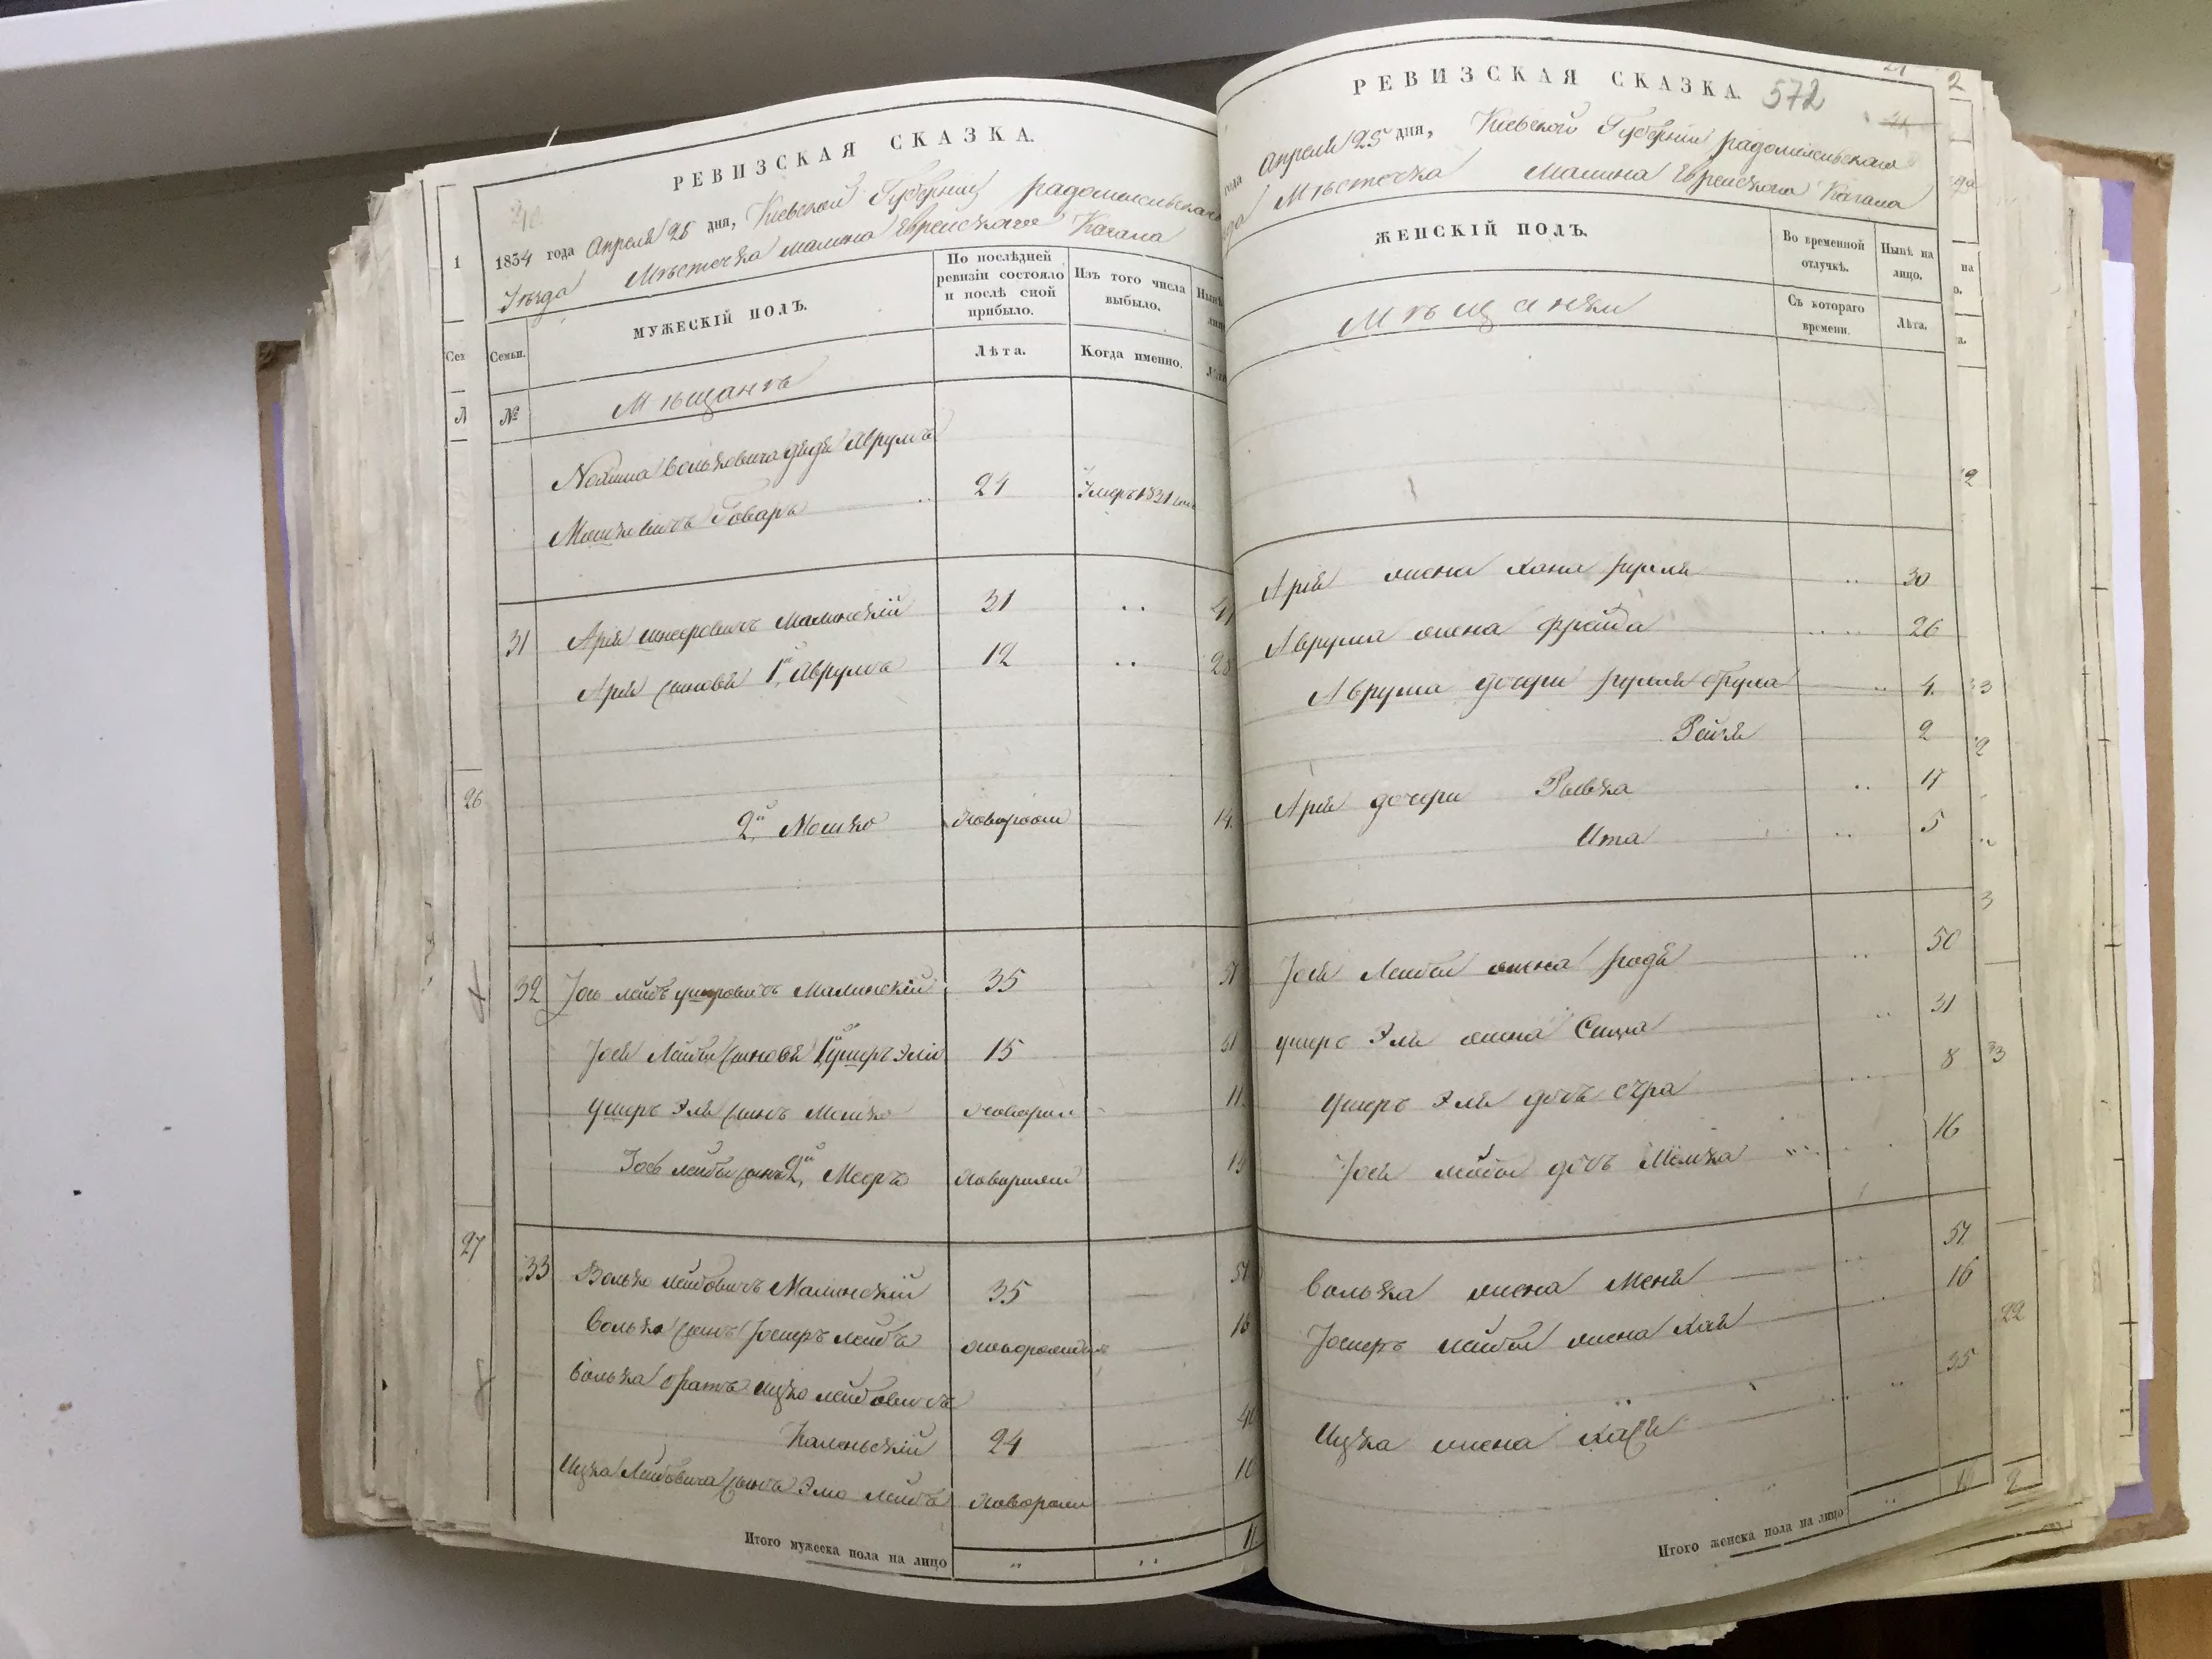 РЕВИЗСКАЯ СКАЗКА.
1834 года Апреля 25 дня, Киевской Губернии радомысльскаго
Уѣзда Мѣстечка малина Еврейскаго Кагала
Семьи.
МУЖЕСКІЙ ПОЛЪ.
По послѣдней ревизіи состояло и послѣ оной прибыло.
Изъ того числа выбыло.
Лѣта.
Когда именно.
№
Мѣщанъ
Нохима Вольковича дядя Аврумъ
Мошковичъ Товаръ .. 24 Умеръ 1831
31 Арій шнееровичъ Малинскій 31 ..
Арія сыновья 1й Аврумъ 12 .. 28
2й Мошко новорож 14
32 Іось лейбъ ушеровичъ Малинскій 35 51
Іося Лейбы сыновья 1й ушеръ Эліи 15 31
ушеръ Эля сынъ Мошко новорож 11
Іось лейбы сынъ 2й Мееръ новорожд
33 Волько лейбовичъ Малинскій 35 51
Волька сынъ Іосперъ лейбъ новорожденъ 16
Волька братъ ицко лейбовичъ
Каменьскій 24 40
Ицка Лейбовича сынъ Элю лейбъ новорож 10
Итого мужеска пола на лицо „ 11
РЕВИЗСКАЯ СКАЗКА. 572
года Апреля 25 дня, Киевской Губернии радомысльскаго
Мѣстечка Малина Еврейскаго Кагала
ЖЕНСКІЙ ПОЛЪ.
Во временной отлучкѣ.
Нынѣ на лицо.
Съ котораго времени.
Лѣта.
Мѣщанки
Арія жена хана рухля .. 30
Аврума жена фрейда .... 26
Аврума дочери рухля брула .. 4.
Рейзя 2
Арія дочери Рывка .. 17
Ита .. 5
Іося Лейбы жена родя .. 50
ушеръ Эля жена Сицра .. 31
ушеръ Эля дочь сура ... 8
Іося лейбы дочь Малка 16
Волька жена Меня .. 51
Іосперъ лейбы жена Хая .. 16
Ицка жена хася .. 35
Итого женска пола на лицо ..
26
27